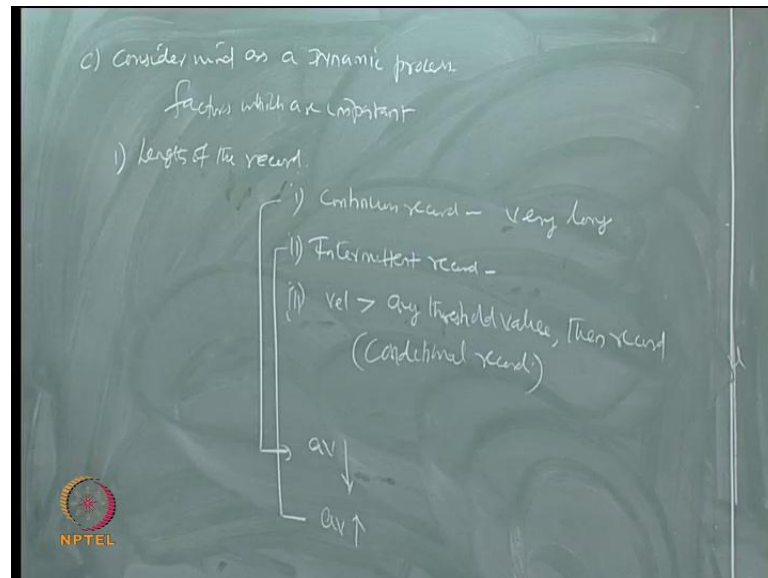 c) Consider wind as a Dynamic process
factors which are important
1) Length of the record.
i) Continuous record - very long
ii) Intermittent record -
iii) vel > any threshold value, then record
(Conditional record)
av ↓
av ↑
NPTEL